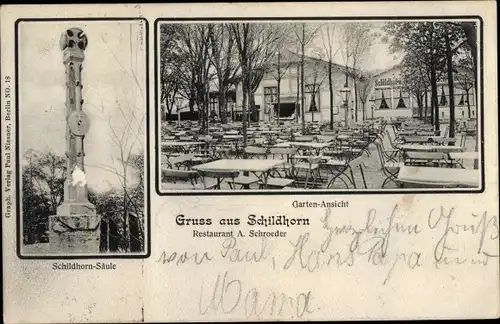 Graph. Verlag Paul Niesner, Berlin NO. 18
Schildhorn
Garten-Ansicht
Schildhorn-Säule
Gruss aus Schildhorn
Restaurant A. Schroeder
Herzlichen Gruß
von Paul, Hans Papa und
Mama.